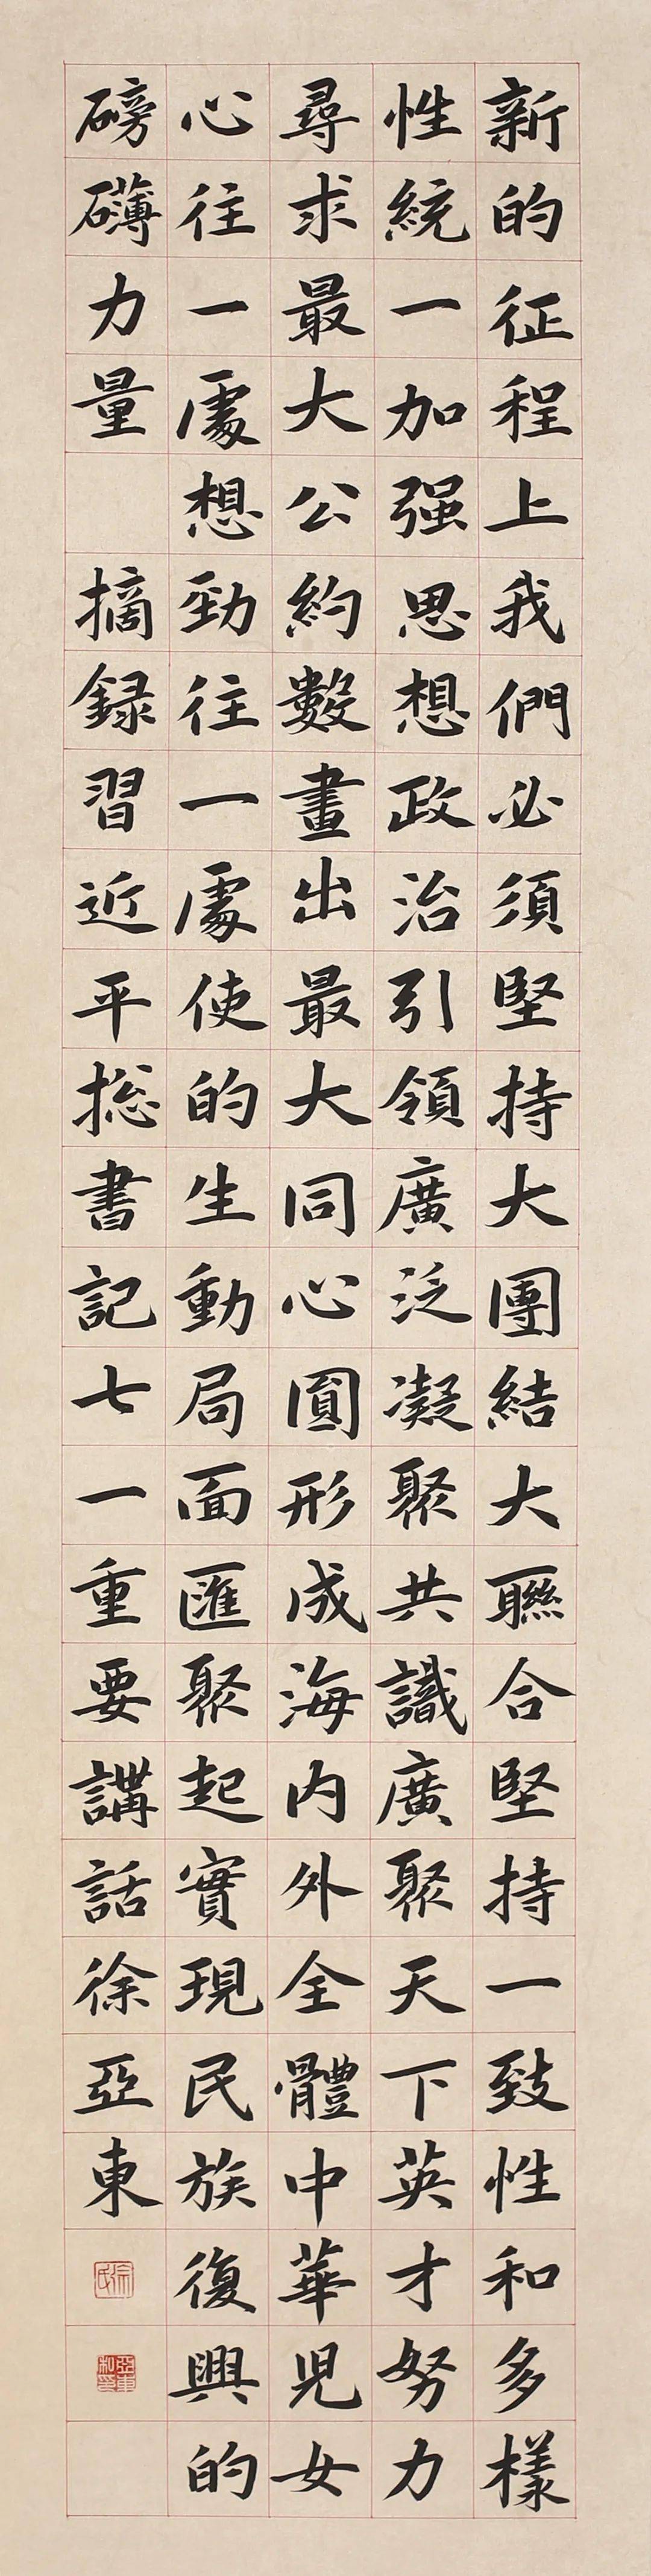 新的征程上我們必須堅持大團結大聯合堅持一致性和多樣
性統一加强思想政治引領廣泛凝聚共識廣聚天下英才努力
尋求最大公約數畫出最大同心圓形成海内外全體中華児女
心往一處想勁往一處使的生動局面匯聚起實現民族復興的
磅礴力量 摘録習近平総書記七一重要講話徐亞東
徐氏
亞東私印